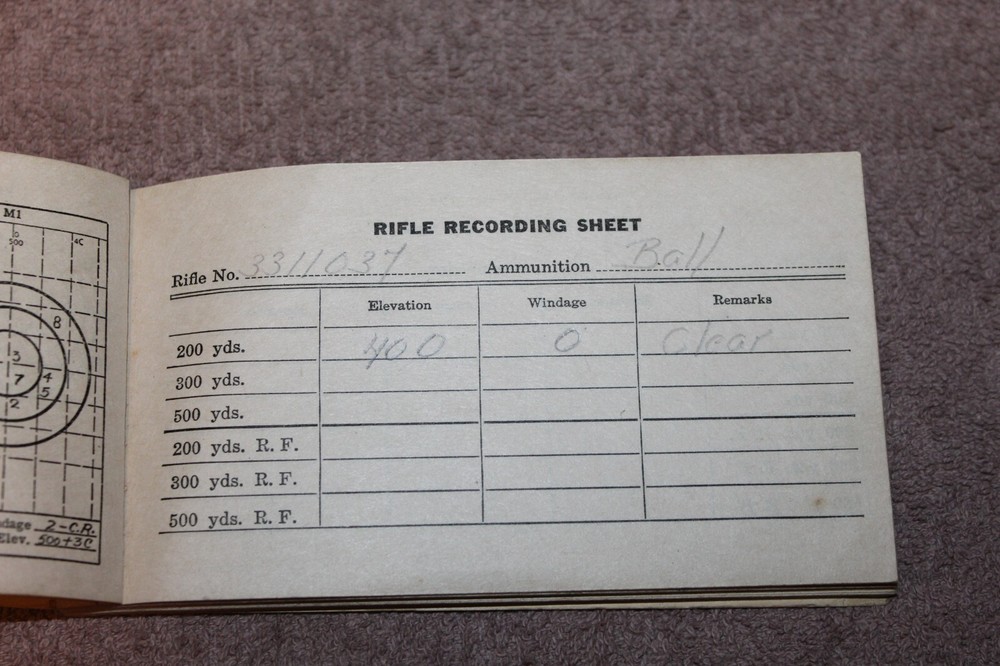 M1
500
4C
8
3
7 4
5
2
dage 2-C.R.
Elev. 500+3C
RIFLE RECORDING SHEET
Rifle No. 3311037 Ammunition Ball
Elevation Windage Remarks
200 yds. 400 0 Clear
300 yds.
500 yds.
200 yds. R. F.
300 yds. R. F.
500 yds. R. F.